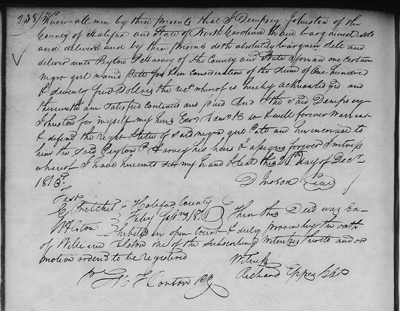 238/ Know all men by thir presents that I Dempsey Johnston of the
County of Halifax and State of North Carolina have bargained sold
and delivered and by thir presents doth absolutely bargain sell and
deliver unto Peyton Harvey of the County and State aforesaid one certain
negro girl named Patt for &in consideration of the sum of One hundred
& seventy five Dollars the rect whereof is hereby acknowledged and
therewith am satisfied contented and paid And I the said Dempsey
Johnston for myself my heirs Exors &c will forever Warrant
& defend the right title of said negro girl Patt and her increase to
him the said Peyton R Harvey his heirs & assigns forever In witness
whereof I have hereunto set my hand & seal this day of Decr
1815
Seal
Test
Halifax County
Then this Deed was Ex-
hibited in open Court & duly proven by the oath
of one of the subscribing Witness thereto and on
motion ordered to be registered
Witness
Richard Eppes